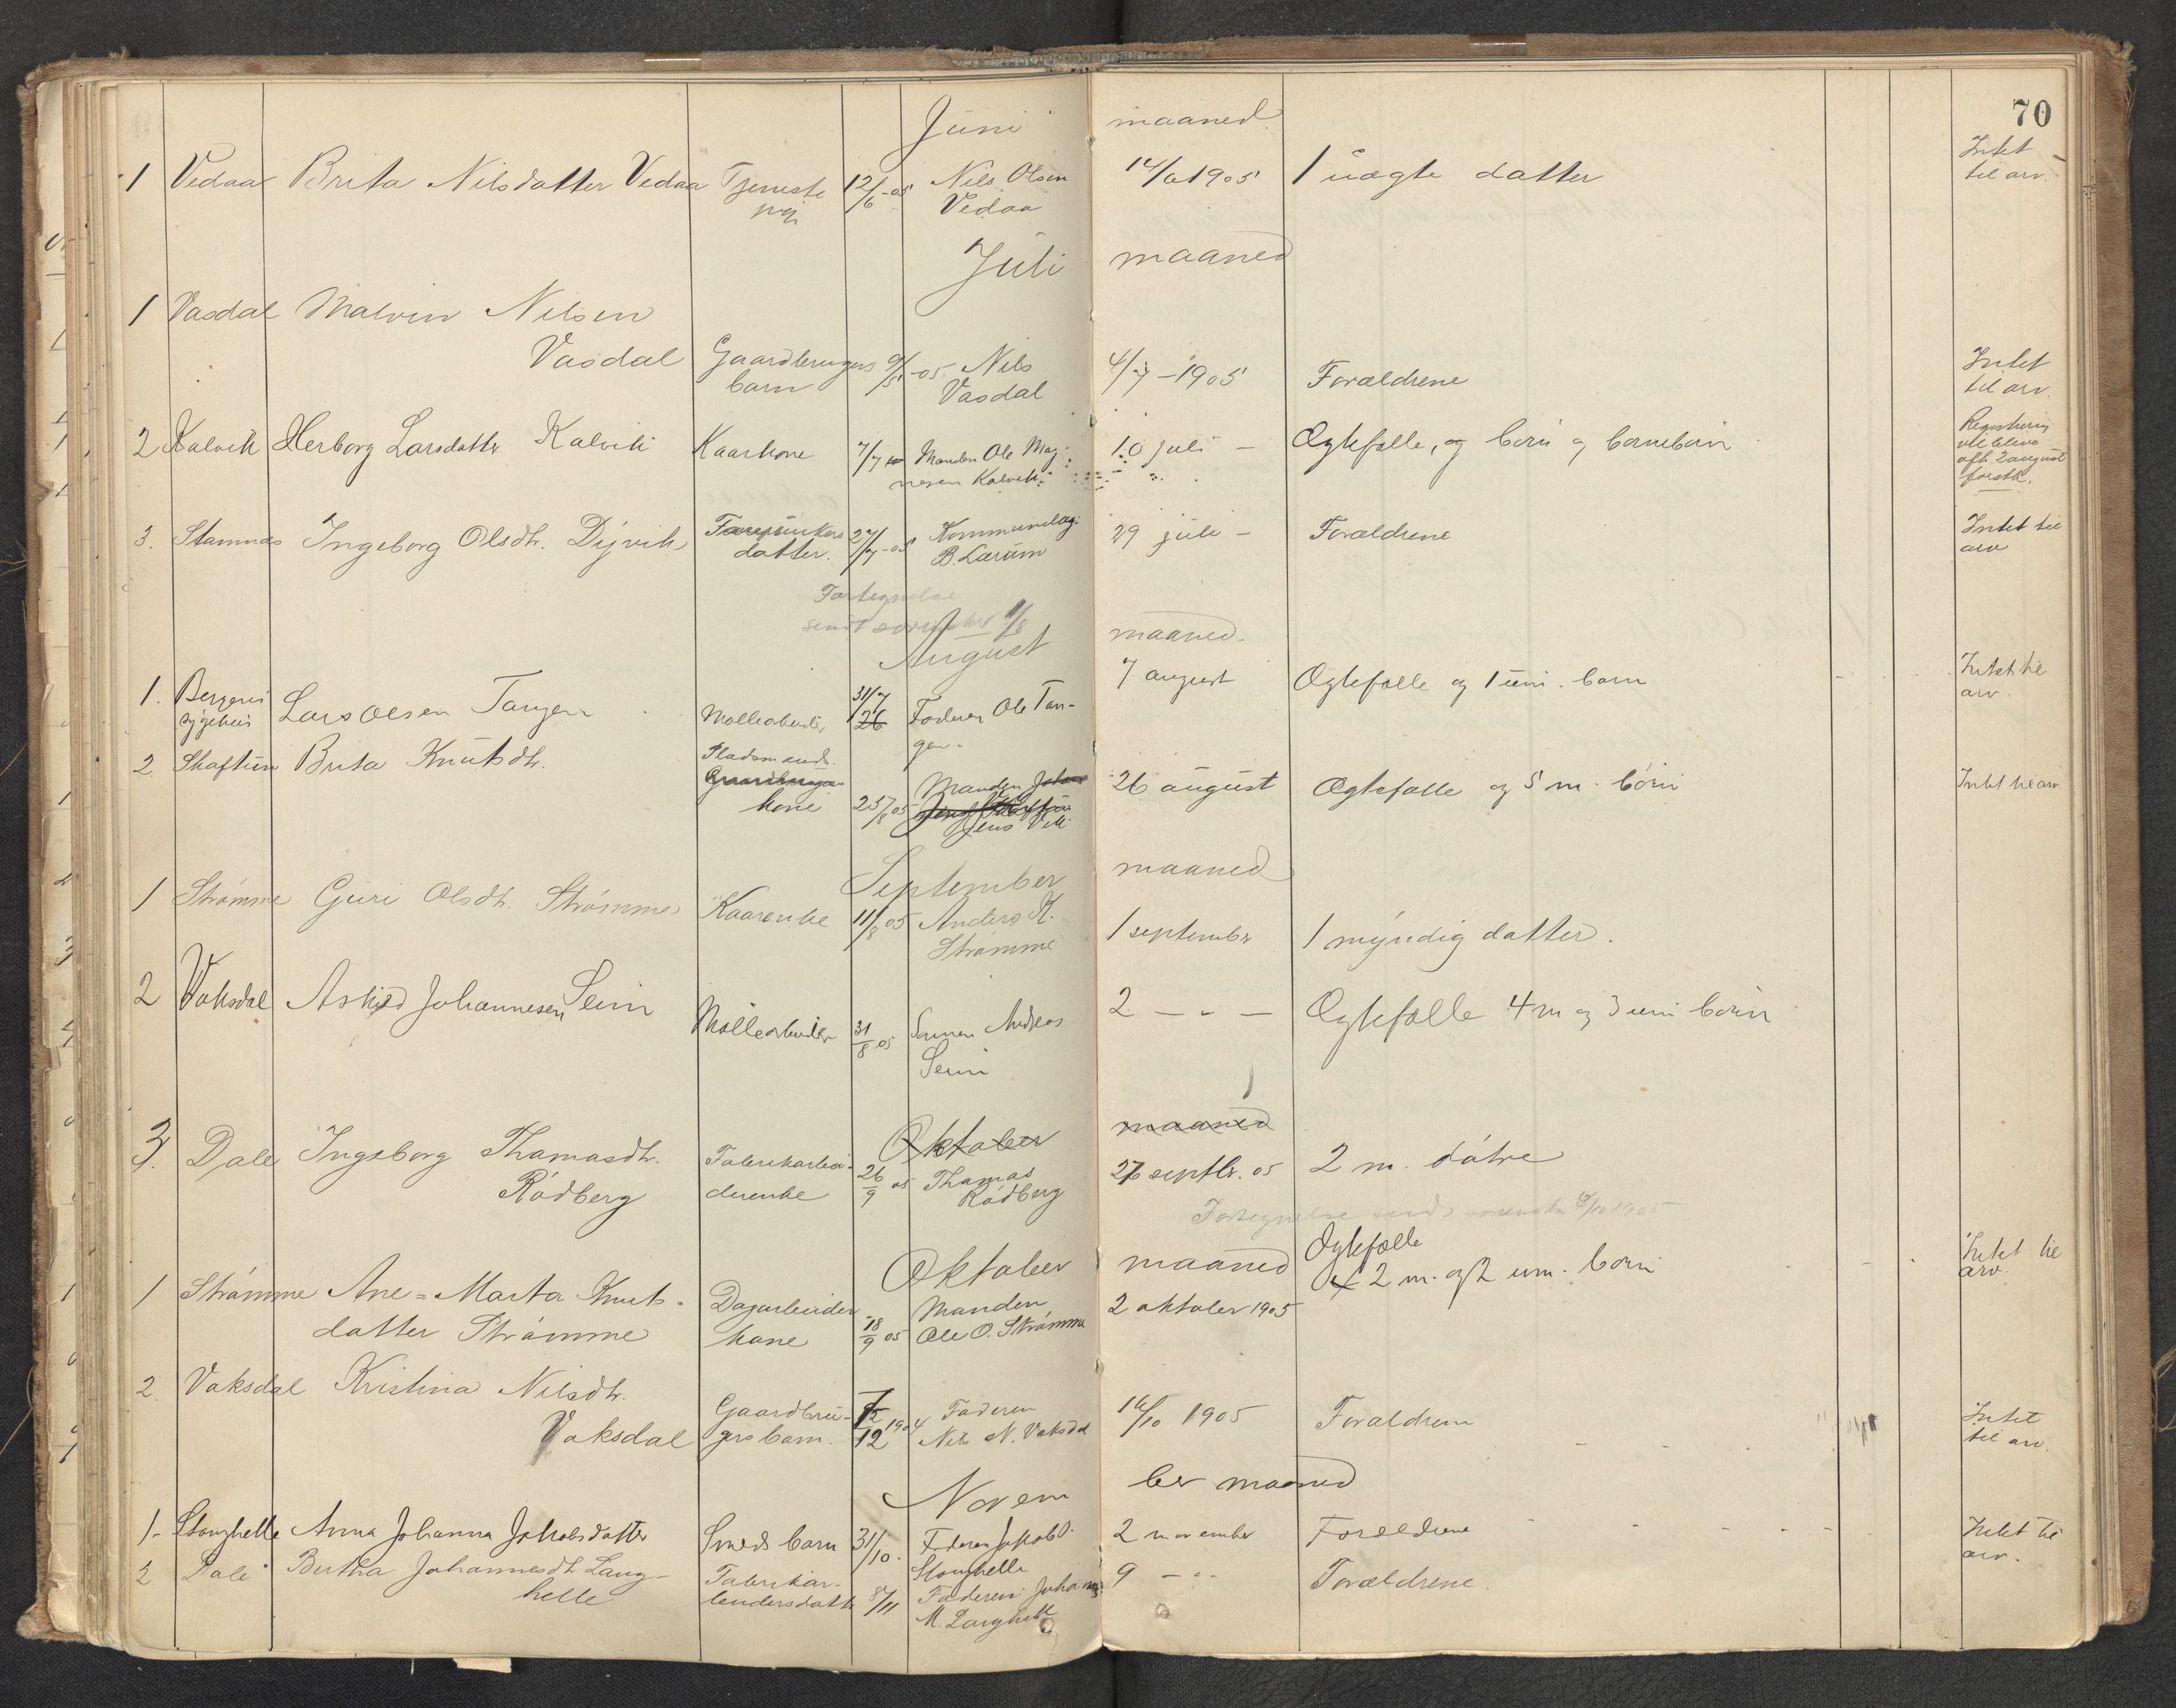 70
Juni maaned
1 Vedaa Brita Nilsdatter Vedaa Tjeneste 12/6-05 Nils Olsen 14/6 1905 1 uægte datter Intet
pige Vedaa til arv.
Juli maaned
1 Vasdal Malvin Nilsen
Vasdal Gaardbrugers 9/5-05 Nils 4/7-1905 Forældrene Intet
barn Vasdal til arv.
2 Kalvik Herborg Larsdatter Kalvik Kaarkone 7/7 Manden Ole Mag- 10 juli - Ægtefælle, og børn og børnebørn Registrering
nesen Kalvik vil blive
afh. 2 august
foretk.
3. Stamnes Ingeborg Olsdtr. Dyvik 27/7-05 Kommunelæge 29 juli - Forældrene Intet til
datter. B. Larüm arv
Fortegnelse
sendt sorenskr 1/8
August maaned.
1. Bergens Lars Olsen Tangen Møllearbeider 31/7 Faderen Ole Tan- 7 august Ægtefælle og 1 um. barn Intet til
sygehus 26 gen. arv
2 Skaftun Brita Knutsdtr. Pladsmands
Gaardbruger Manden Johan
kone 25/8 05 Jens Vik 26 august Ægtefælle og 5 m. børn Intet til arv
September maaned
1 Strømme Guri Olsdtr. Strømme Kaarenke 11/8 05 Anders K. 1 septembr 1 myndig datter.
Strømme
2 Vaksdal Askild Johannesen Seim Møllearbeider 31/8 05 Sønnen Andreas 2 - " - Ægtefælle 4 m og 3 um børn
Seim
Oktober maaned
3. Dale Ingeborg Thomasdtr. Fabrikarbei- 26/9 05 Thomas 27 septbr. 05 2 m. døtre
Rødberg derenke Rødberg
Fortegnelse sendt sorenskr 1905
Oktober maaned Ægtefælle Intet til
1 Strømme Ane=Marta Knuts- Dagarbeider Manden 2 oktober 1905 2 m. og 2 um. børn arv.
datter Strømme kone 18/9 05 Ole O. Strømme
2. Vaksdal Kristina Nilsdtr.
Vaksdal Gaardbru- 12 1904 Faderen 16/10 1905 Forældrene Intet
gers barn. Nils N. Vaksdal til arv.
Novem ber maaned
1- Stanghelle Anna Johanna Jakobsdatter Smeds barn 31/10. Faderen Jakob O. 2 november Forældrene Intet til
Stanghelle arv.
2 Dale Bertha Johannesdtr Lang- Fabrikar- 8/11 Faderen Johannes 9 - " - Forældrene.
helle beidersdatter M. Langhelle